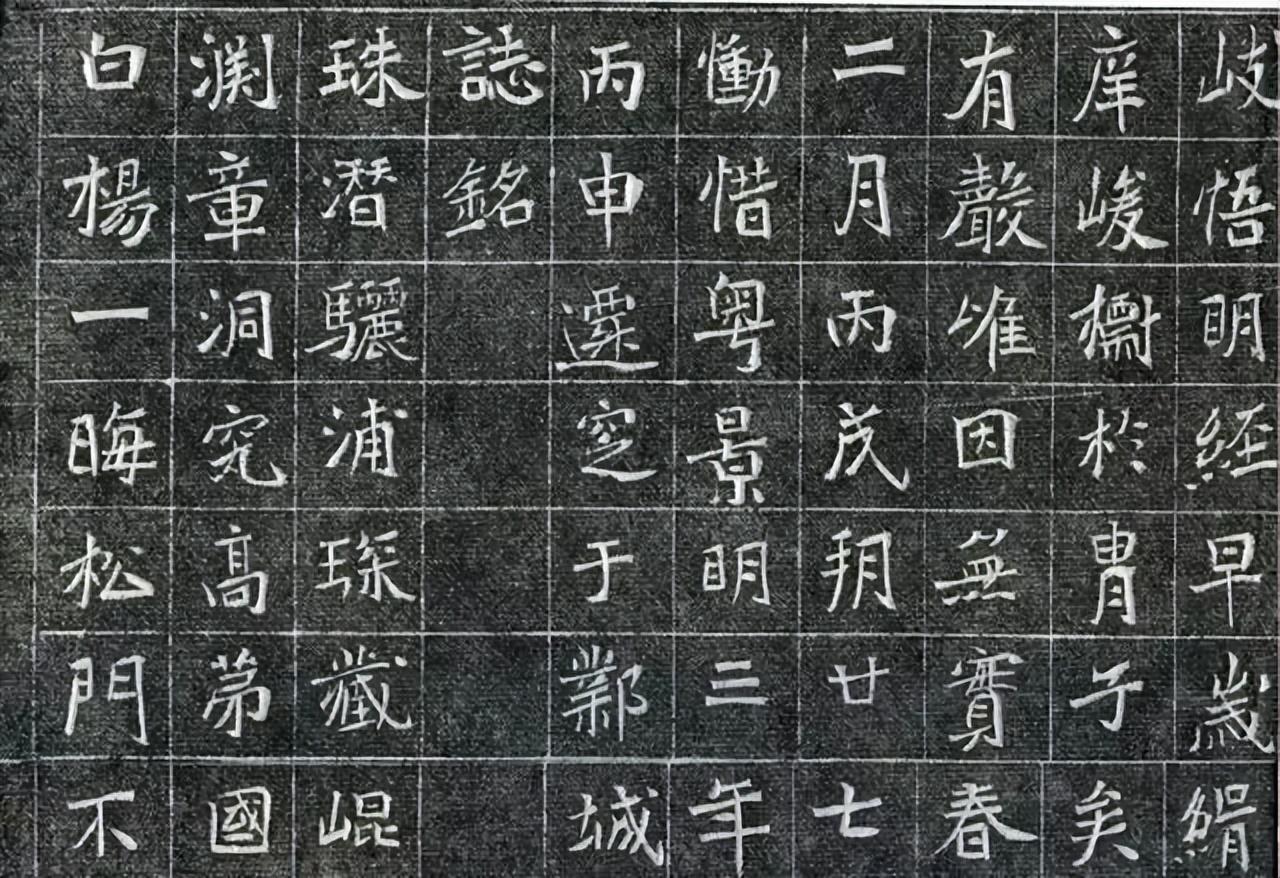 岐悟明經早歲緝
庠峻於冑子矣
有聲唯因無實春
二月丙戊朔廿七
慟惜粵景明三年
丙申遷窆于鄴城
誌銘
珠潛驪浦琛藏崐
渕章洞究高苐國
白楊一晦松門不